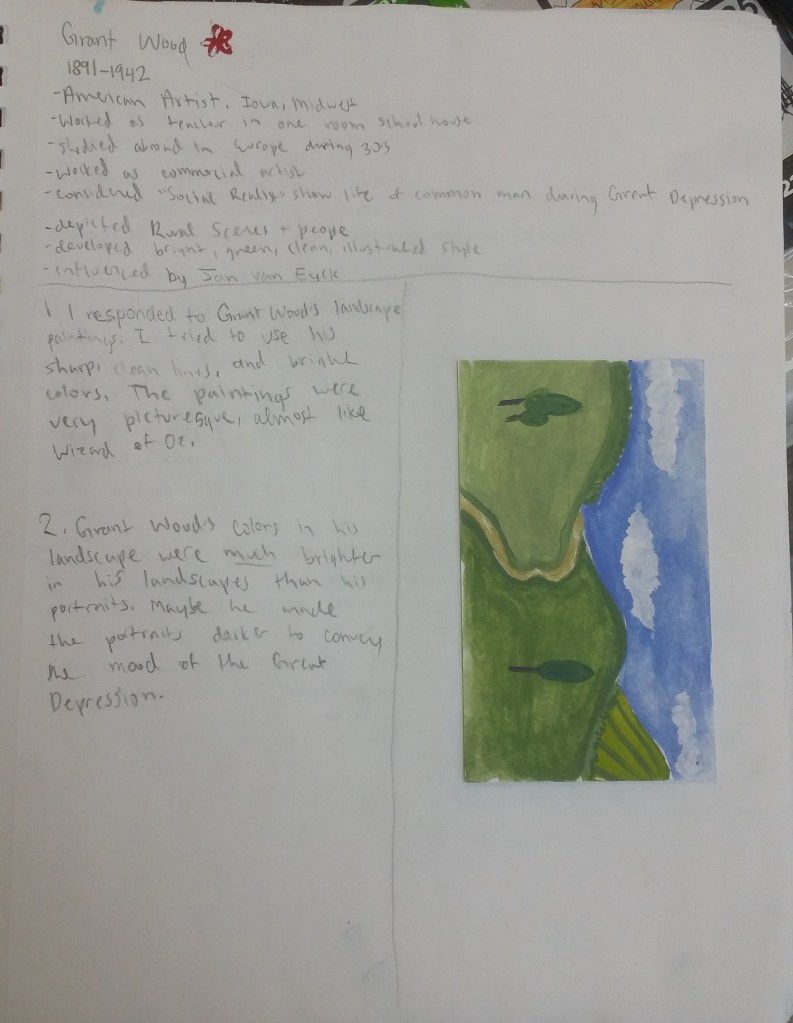 Grant Wood
1891-1942
-American Artist, Iowa, Midwest
-Worked as teacher in one room school house
-studied abroad in Europe during 30s
-worked as commercial artist
-considered "Social Realist" show life of common man during Great Depression
-depicted Rural Scenes + peope
-developed bright, green, clean, illustrated style
-influenced by Jan van Eyck
1 I responded to Grant Wood's landscape
paintings. I tried to use his
sharp, clean lines, and bright
colors. The paintings were
very picturesque, almost like
Wizard of Oz.
2. Grant Wood's colors in his
landscape were much brighter
in his landscapes than his
portraits. Maybe he made
the portraits darker to convey
the mood of the Great
Depression.